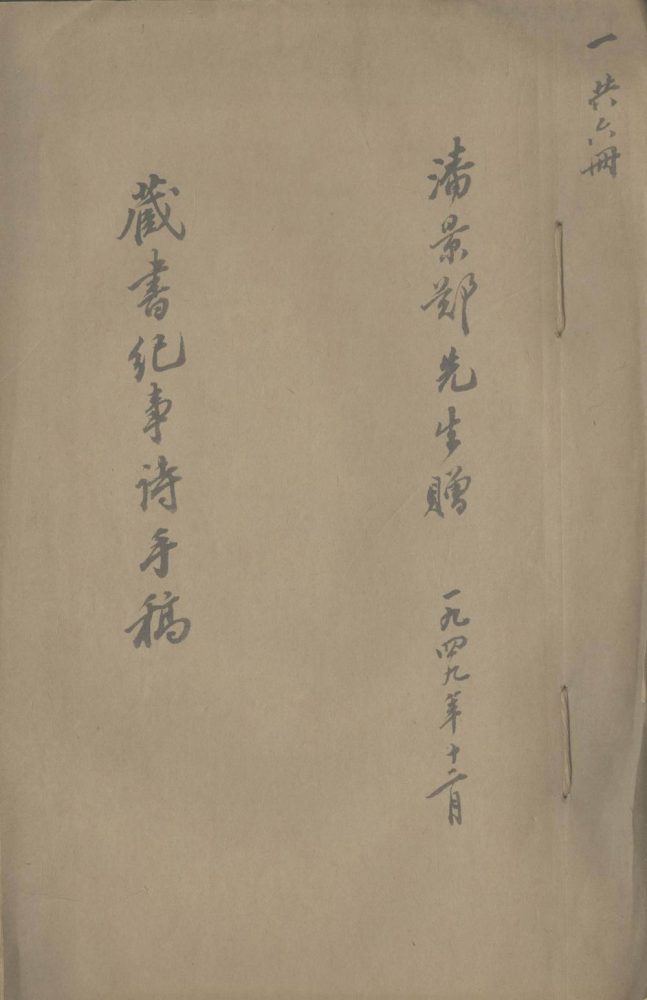 一 共六册
潘景郑先生贈 一九四九年十二月
藏書纪事诗手稿